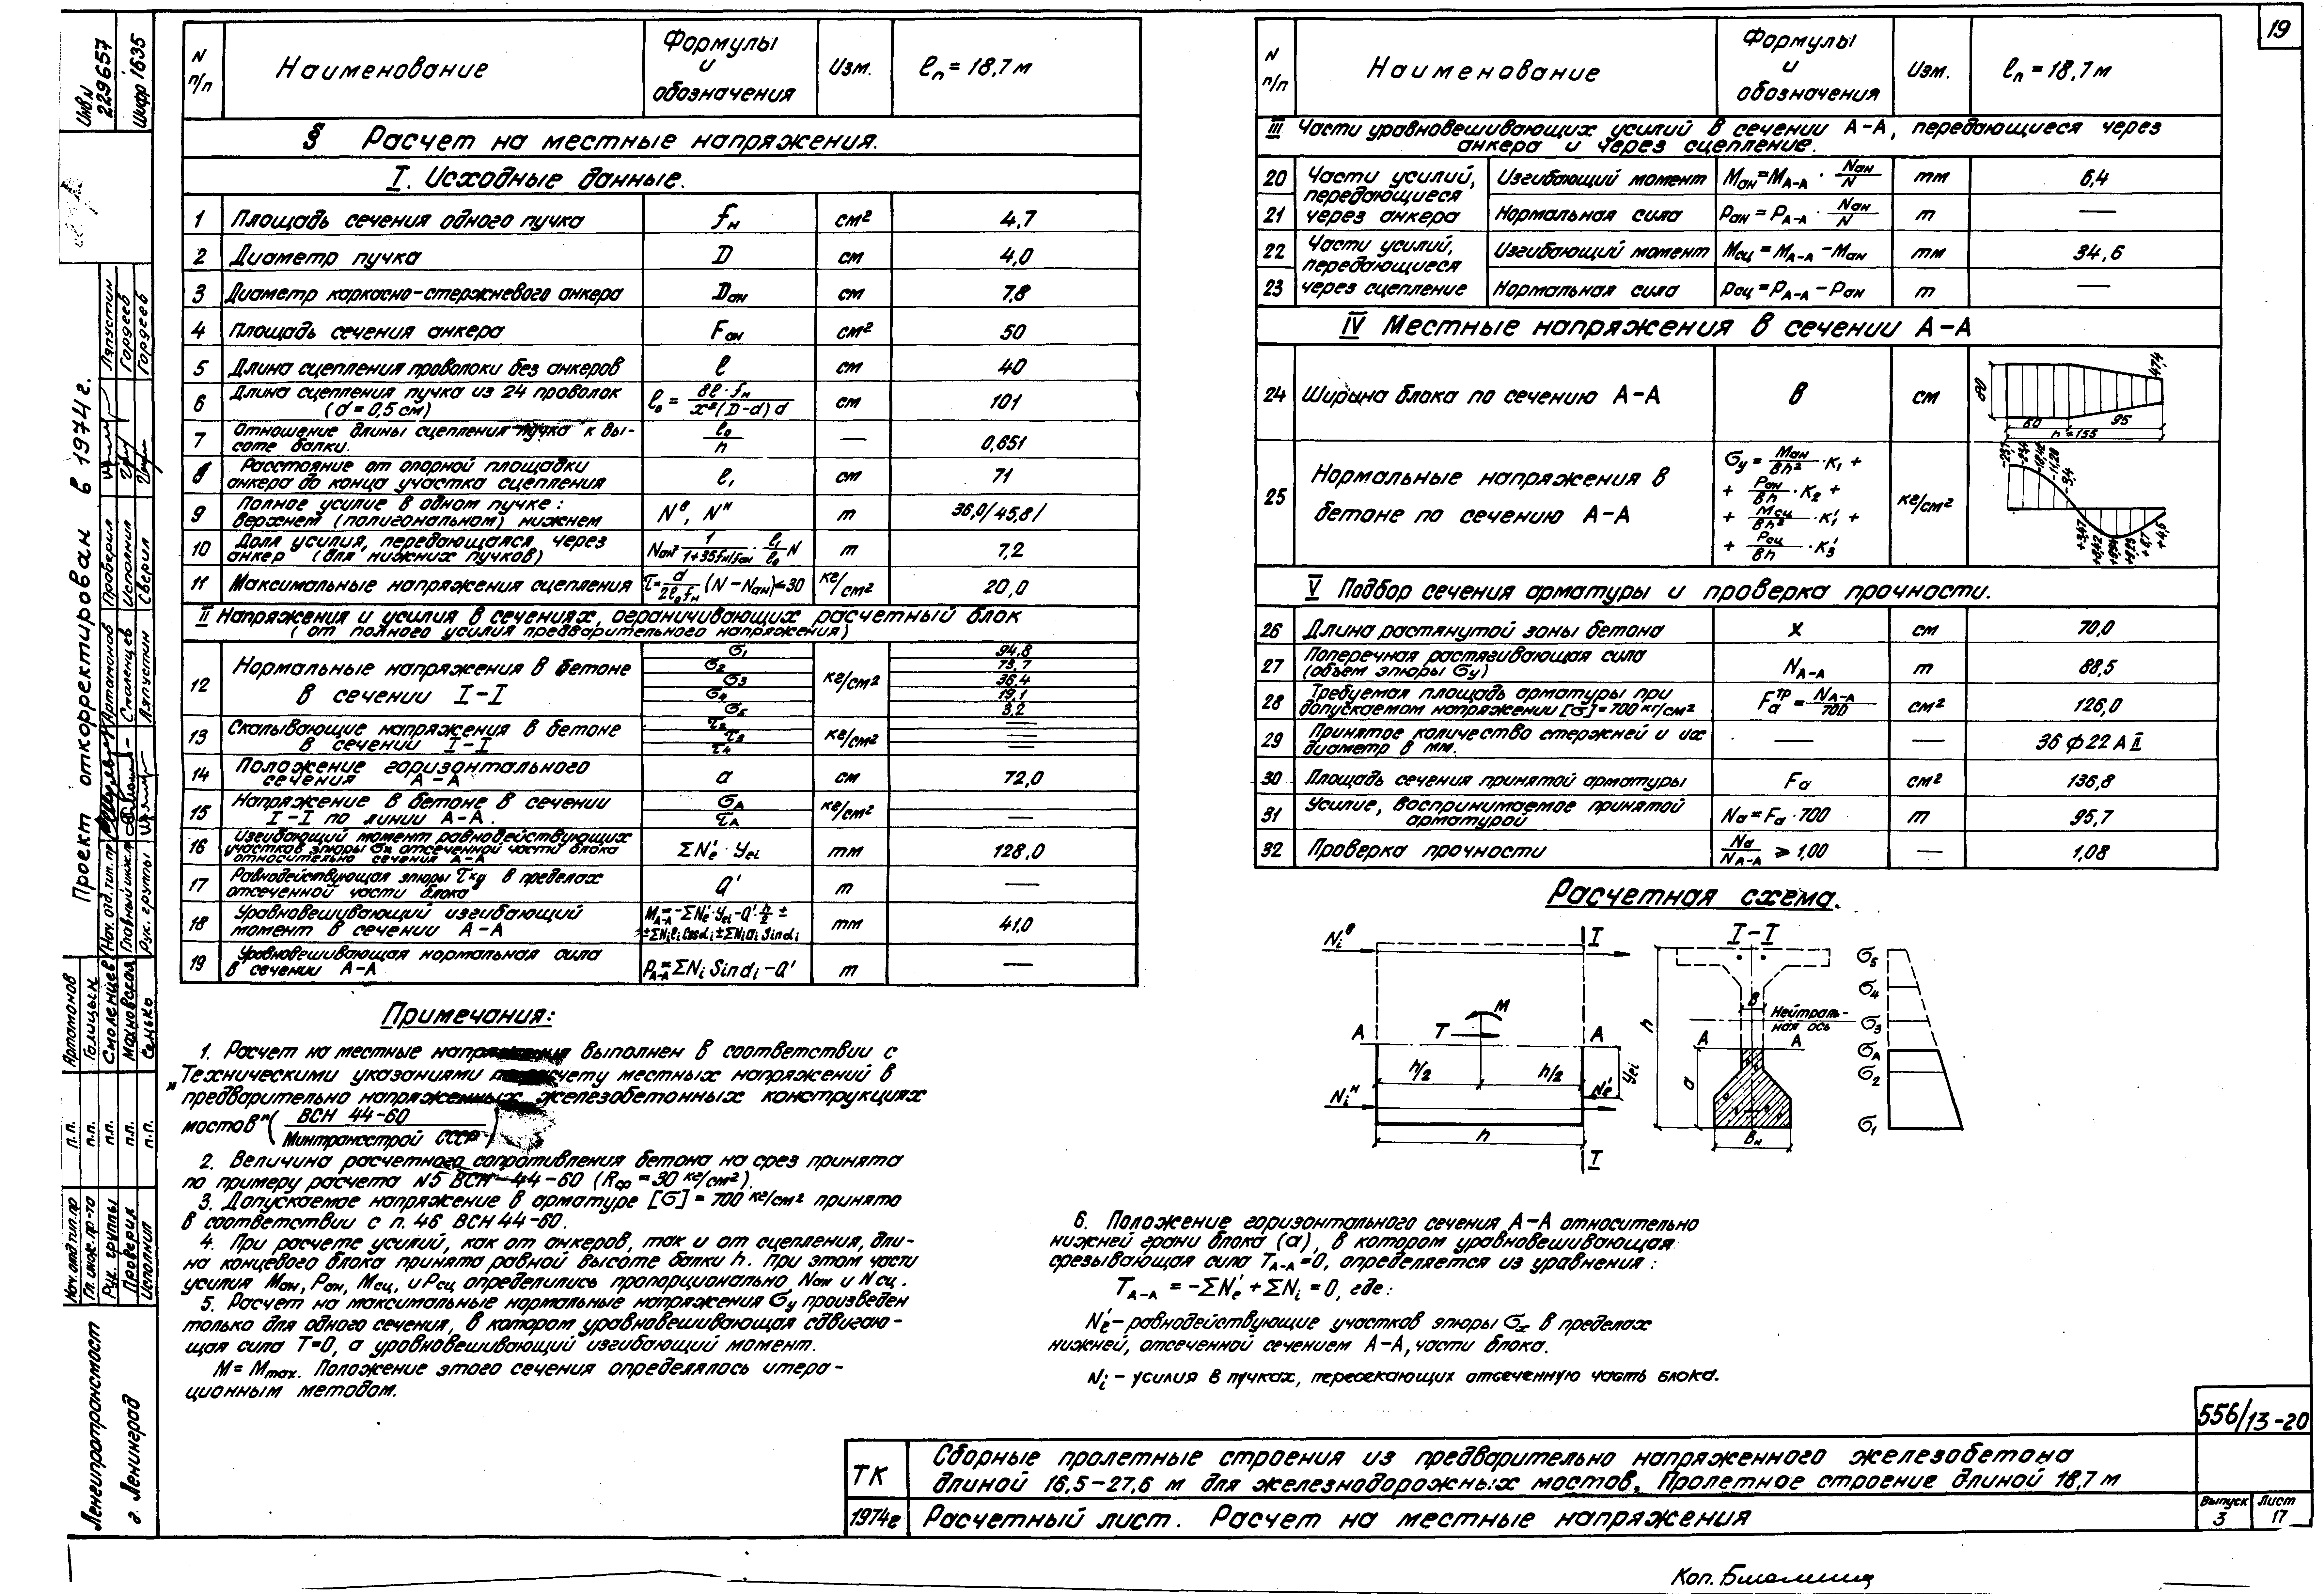 19
Инв.N 229657
Шифр 1635
Проект откорректирован в 1974г.
N п/п
Наименование
Формулы и обозначения
Изм.
ℓп = 18,7 м
§ Расчет на местные напряжения.
I. Исходные данные.
1 Площадь сечения одного пучка fн см² 4,7
2 Диаметр пучка D см 4,0
3 Диаметр каркасно-стержневого анкера Dан см 7,8
4 Площадь сечения анкера Fан см² 50
5 Длина сцепления проволоки без анкеров ℓ см 40
6 Длина сцепления пучка из 24 проволок (d=0,5 см) ℓ₀ = 8ℓ·fн / x²(D-d)d см 101
7 Отношение длины сцепления пучка к высоте балки. ℓ₀/h — 0,651
8 Расстояние от опорной площадки анкера до конца участка сцепления ℓ₁ см 71
9 Полное усилие в одном пучке: верхнем (полигональном) нижнем Nᴮ, Nᴴ т 36,0/45,8/
10 Доля усилия, передающаяся через анкер (для нижних пучков) Nан= 1/1+35fн/fан · ℓ₁/ℓ₀ N т 7,2
11 Максимальные напряжения сцепления τ= d/2ℓ₀fн (N-Nан)≤30 кг/см² 20,0
II Напряжения и усилия в сечениях, ограничивающих расчетный блок
(от полного усилия предварительного напряжения)
12 Нормальные напряжения в бетоне в сечении I-I кг/см²
σ₁ 94,8
σ₂ 73,7
σ₃ 36,4
σ₄ 19,1
σ₅ 3,2
13 Скалывающие напряжения в бетоне в сечении I-I кг/см²
τ₂ —
τ₃ —
τ₄ —
14 Положение горизонтального сечения А-А a см 72,0
15 Напряжение в бетоне в сечении I-I по линии А-А. σА τА кг/см² —
16 Изгибающий момент равнодействующих участков эпюры σx отсеченной части блока относительно сечения А-А ΣN'e · Yei тм 128,0
17 Равнодействующая эпюры τxy в пределах отсеченной части блока Q' т —
18 Уравновешивающий изгибающий момент в сечении А-А MА-А=-ΣN'e·Yei-Q'·h/2 ± ±ΣNiℓi Cosαi ±ΣNiai Sinαi тм 41,0
19 Уравновешивающая нормальная сила в сечении А-А PА-А=ΣNi Sinαi-Q' т —
Примечания:
1. Расчет на местные напряжения выполнен в соответствии с
„Техническими указаниями по расчету местных напряжений в
предварительно напряженных железобетонных конструкциях
мостов" (ВСН 44-60 / Минтрансстрой СССР)
2. Величина расчетного сопротивления бетона на срез принята
по примеру расчета N5 ВСН-44-60 (Rср = 30 кг/см²).
3. Допускаемое напряжение в арматуре [σ] = 700 кг/см² принято
в соответствии с п. 46 ВСН 44-60.
4. При расчете усилий, как от анкеров, так и от сцепления, дли-
на концевого блока принята равной высоте балки h. При этом части
усилия Mан, Pан, Mсц, и Pсц определились пропорционально Nан и Nсц.
5. Расчет на максимальные нормальные напряжения σy произведен
только для одного сечения, в котором уравновешивающая сдвигаю-
щая сила T=0, а уравновешивающий изгибающий момент.
M = Mmax. Положение этого сечения определялось итера-
ционным методом.
N п/п
Наименование
Формулы и обозначения
Изм.
ℓп = 18,7 м
III Части уравновешивающих усилий в сечении А-А, передающиеся через
анкера и через сцепление.
20 Части усилий, передающиеся через анкера Изгибающий момент Mан=MА-А · Nан/N тм 6,4
21 Нормальная сила Pан=PА-А · Nан/N т —
22 Части усилий, передающиеся через сцепление Изгибающий момент Mсц=MА-А-Mан тм 34,6
23 Нормальная сила Pсц=PА-А-Pан т —
IV Местные напряжения в сечении А-А
24 Ширина блока по сечению А-А в см
80
47,4
60
95
h=155
25 Нормальные напряжения в бетоне по сечению А-А σy= Mан/вh² ·K₁ + + Pан/вh ·K₂ + + Mсц/вh² ·K'₁ + + Pсц/вh ·K'₃ кг/см²
V Подбор сечения арматуры и проверка прочности.
26 Длина растянутой зоны бетона X см 70,0
27 Поперечная растягивающая сила (объем эпюры σy) NА-А т 88,5
28 Требуемая площадь арматуры при допускаемом напряжении [σ]=700 кг/см² Fₐᵀᴾ = NА-А/700 см² 126,0
29 Принятое количество стержней и их диаметр в мм. — — 36 ф 22 А II
30 Площадь сечения принятой арматуры Fа см² 136,8
31 Усилие, воспринимаемое принятой арматурой Nа=Fа·700 т 95,7
32 Проверка прочности Nа/NА-А ⩾ 1,00 — 1,08
Расчетная схема.
Niᴮ I I-I σ₅
σ₄
M в Нейтраль-
ная ось
T h σ₃
А А А А σА
σ₂
h/2 h/2 Yei a
Niᴴ N'e σ₁
h Вн
I
6. Положение горизонтального сечения А-А относительно
нижней грани блока (a), в котором уравновешивающая
срезывающая сила TА-А=0, определяется из уравнения:
TА-А = -ΣN'e + ΣNi = 0, где:
N'e - равнодействующие участков эпюры σx в пределах
нижней, отсеченной сечением А-А, части блока.
Ni - усилия в пучках, пересекающих отсеченную часть блока.
556/13-20
ТК
Сборные пролетные строения из предварительно напряженного железобетона
длиной 16,5-27,6 м для железнодорожных мостов. Пролетное строение длиной 18,7 м
1974г
Расчетный лист. Расчет на местные напряжения
Выпуск 3
Лист 17
Ленгипротрансмост
г. Ленинград
Нач. отд. тип. пр п.п. Артамонов
Гл. инж. пр-та п.п. Голицын
Рук. группы п.п. Смоленцев
Проверил п.п. Махновская
Исполнил п.п. Сенько
Нач. отд. тип. пр. Артамонов
Главный инж. п Смоленцев
Рук. группы Ляпустин
Проверил Ляпустин
Исполнил Гордеев
Сверил Гордеев
Коп.